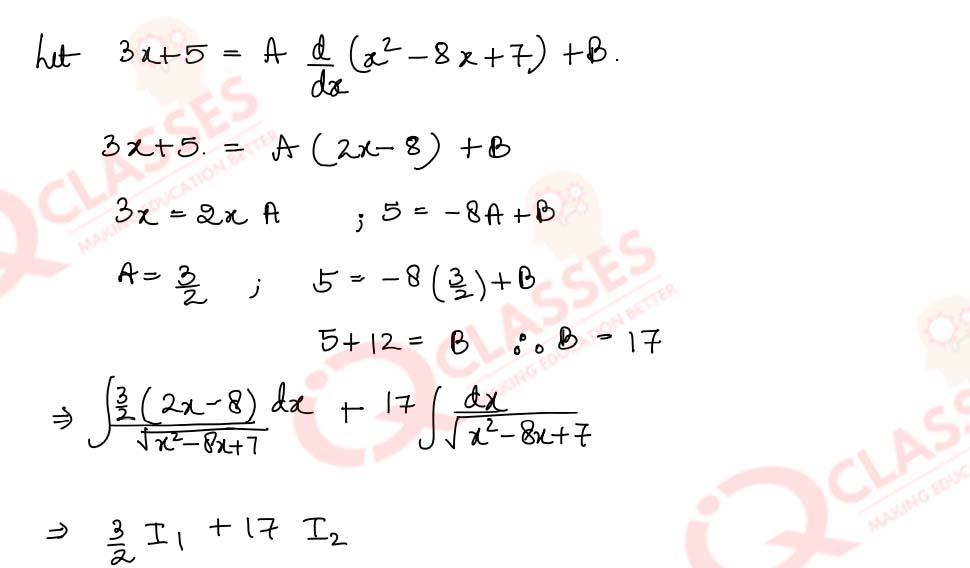 Let 3x+5 = A d/dx (x² - 8x + 7) + B.
3x+5. = A (2x - 8) + B
3x = 2x A ; 5 = -8A + B
A = 3/2 ; 5 = -8 (3/2) + B
5 + 12 = B ∴ B = 17
⇒ ∫ 3/2 (2x - 8) dx / √x² - 8x + 7 + 17 ∫ dx / √x² - 8x + 7
⇒ 3/2 I₁ + 17 I₂
CLASSES
MAKING EDUCATION BETTER
CLASSES
MAKING EDUCATION BETTER
CLASS
MAKING EDUC